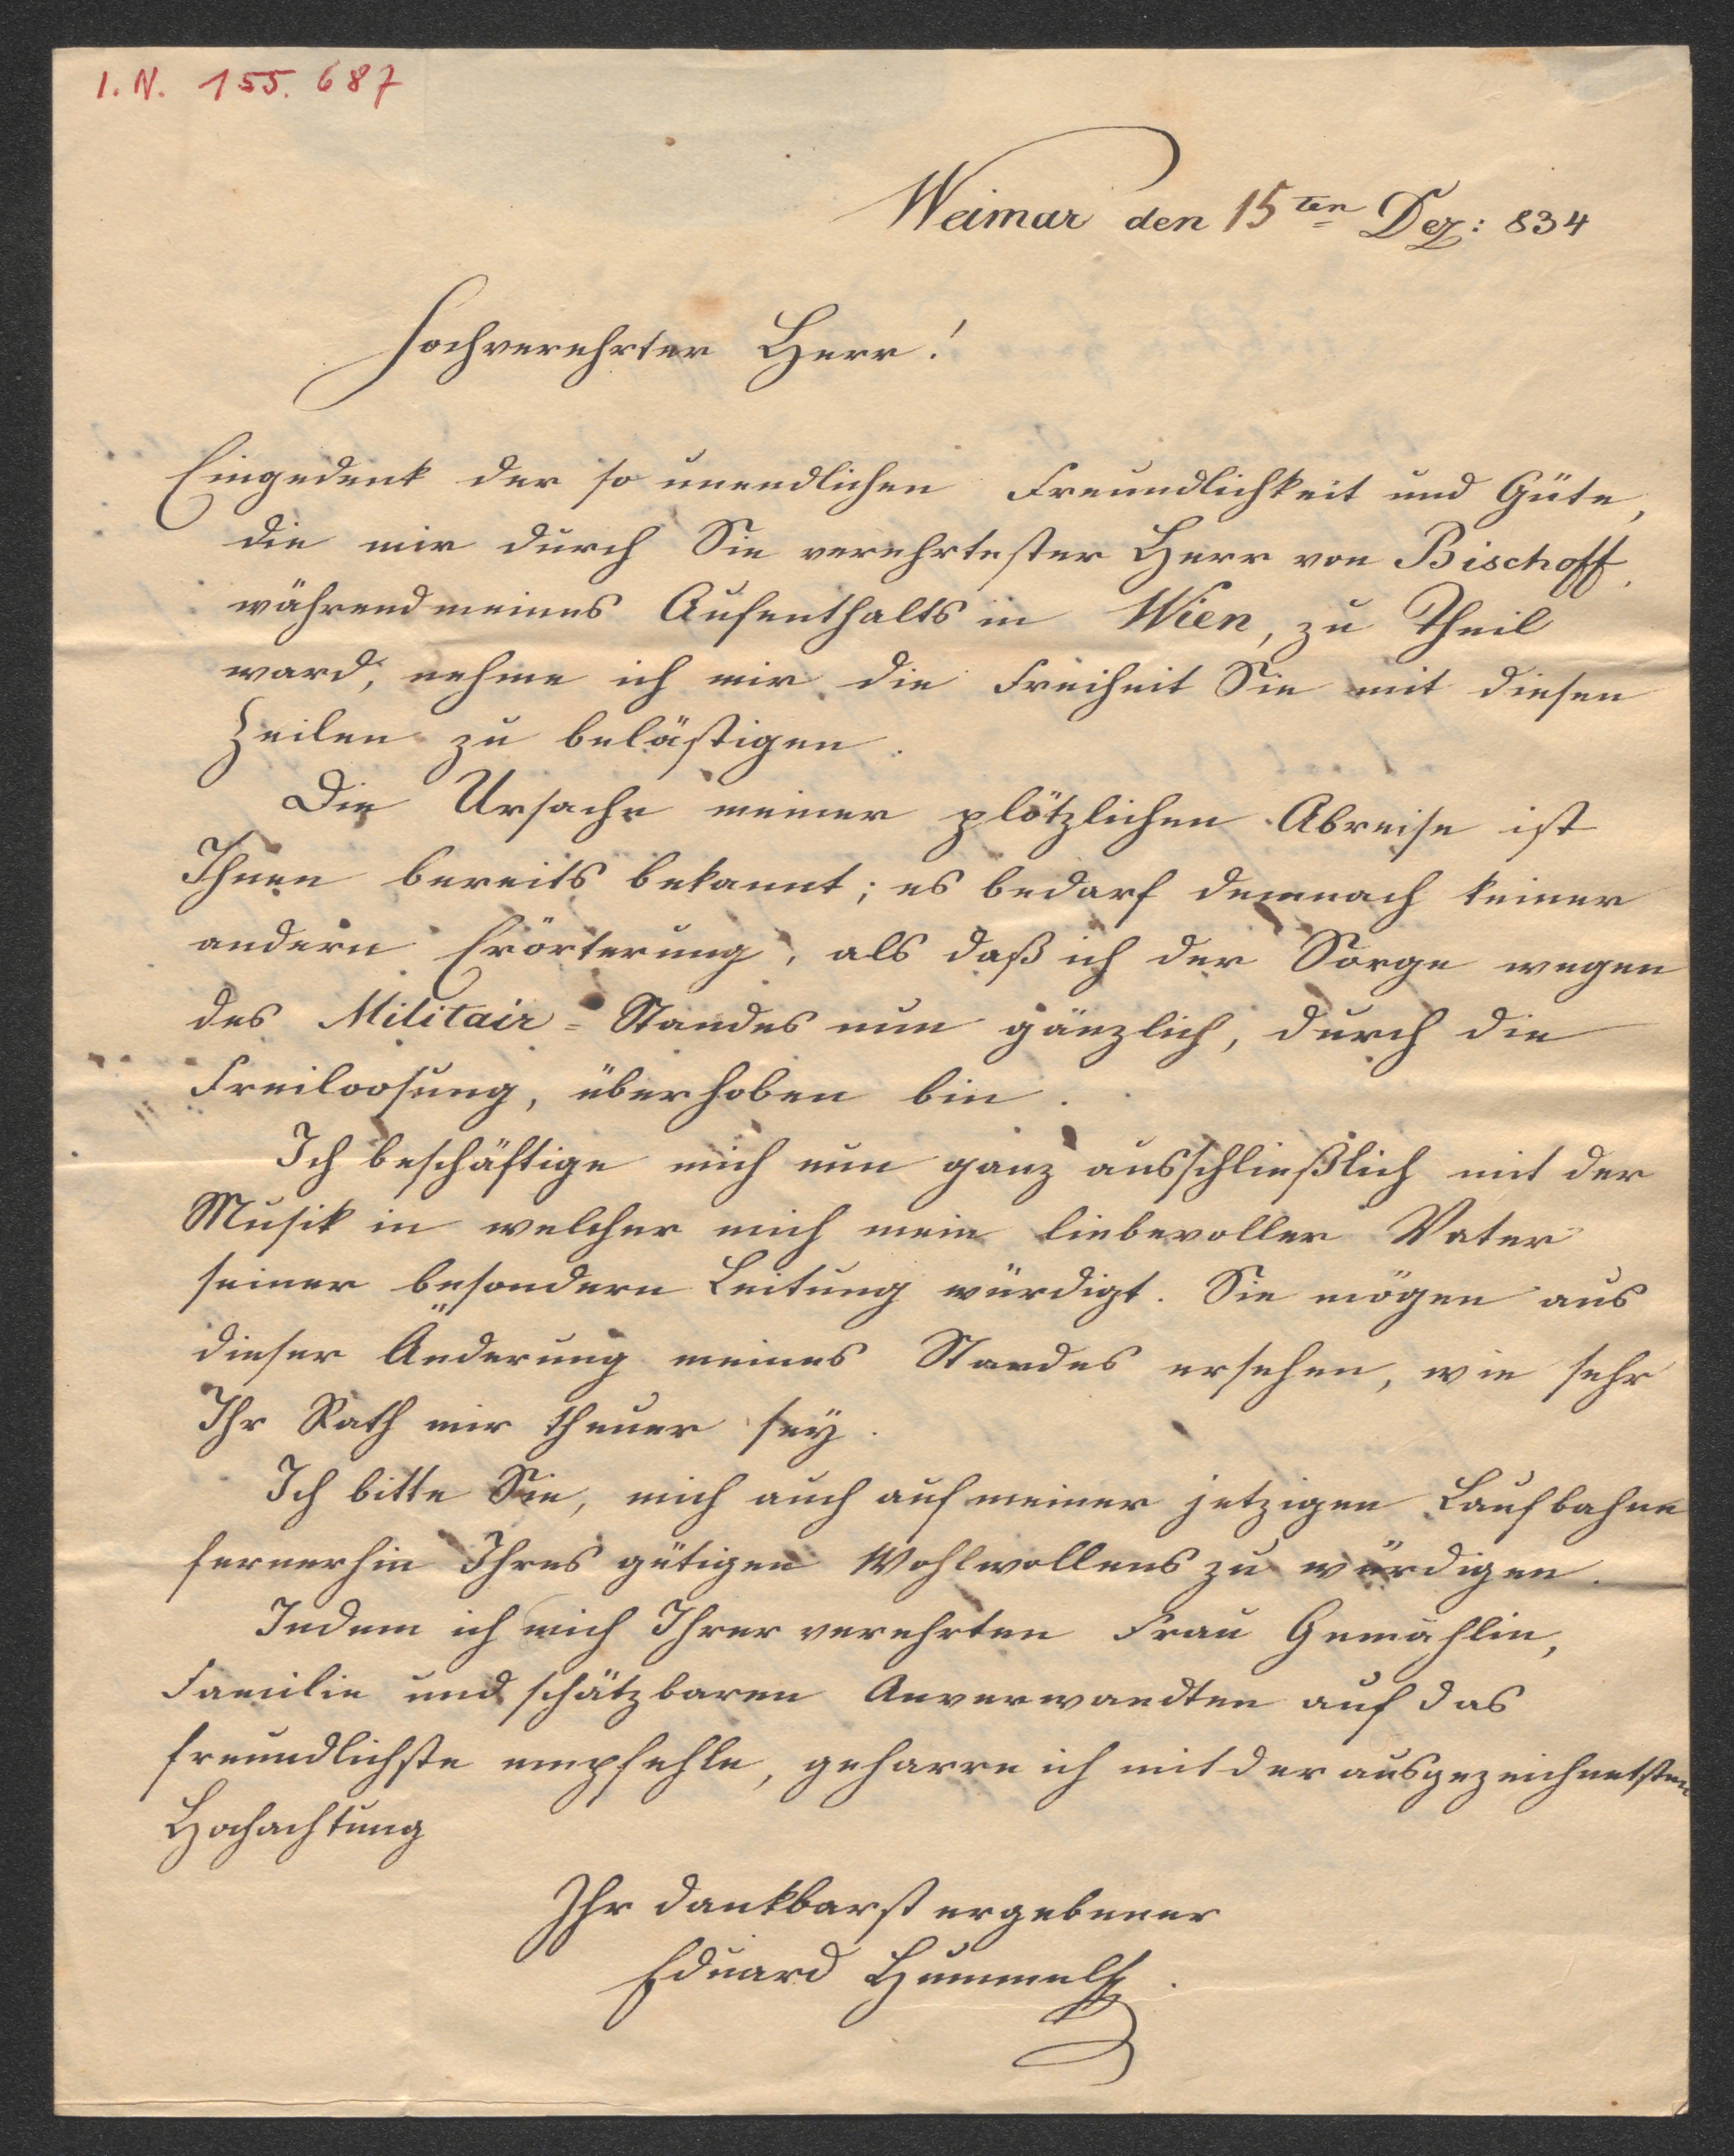 I. N. 155. 687
Weimar den 15ten Dez: 834
Hochverehrter Herr!
Eingedenk der so unendlichen Freundlichkeit und Güte,
die mir durch Sie verehrtester Herr von Bischoff,
während meines Aufenthalts in Wien, zu Theil
ward, nehme ich mir die Freiheit Sie mit diesen
Zeilen zu belästigen.
Die Ursache meiner plötzlichen Abreise ist
Ihnen bereits bekannt; es bedarf demnach keiner
andern Erörterung, als daß ich der Sorge wegen
des Militair-Standes nun gänzlich, durch die
Freiloosung, überhoben bin.
Ich beschäftige mich nun ganz ausschließlich mit der
Musik in welcher mich mein liebevoller Vater
seiner besondern Leitung würdigt. Sie mögen aus
dieser Änderung meines Standes ersehen, wie sehr
Ihr Rath mir theuer sey.
Ich bitte Sie, mich auch auf meiner jetzigen Laufbahne
fernerhin Ihres gütigen Wohlwollens zu würdigen.
Indem ich mich Ihrer verehrten Frau Gemahlin,
Familie und schätzbaren Anverwandten auf das
freundlichste empfehle, geharre ich mit der ausgezeichnetsten
Hochachtung
Ihr dankbarst ergebener
Eduard Hummel